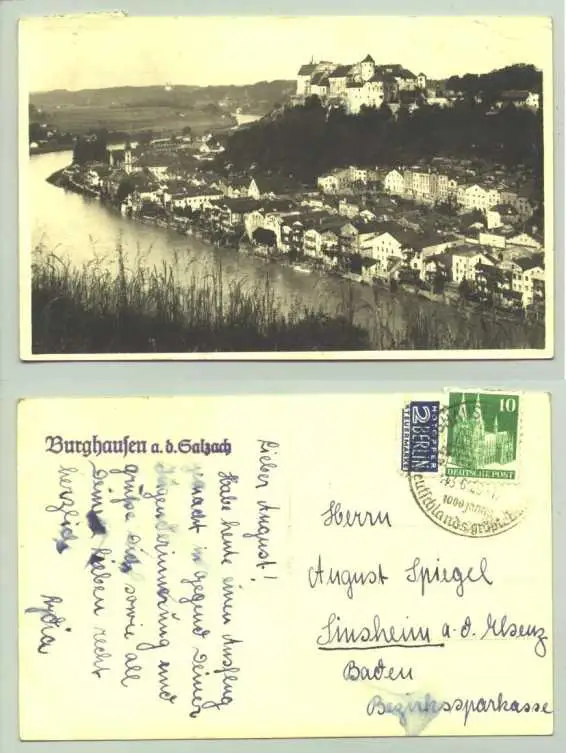 Burghausen a.d. Salzach
Lieber August!
Habe heute einen Ausflug
gemacht in gegend Deiner
Jugenderinnerung und
grüße dich sowie all
Deine lieben recht
herzlich
Lydia
NOTOPFER
2 BERLIN
STEUERMARKE
10
DEUTSCHE POST
1000 jährige
Deutschlands größte
Herrn
August Spiegel
Sinsheim a.d. Elsenz
Baden
Bezirkssparkasse